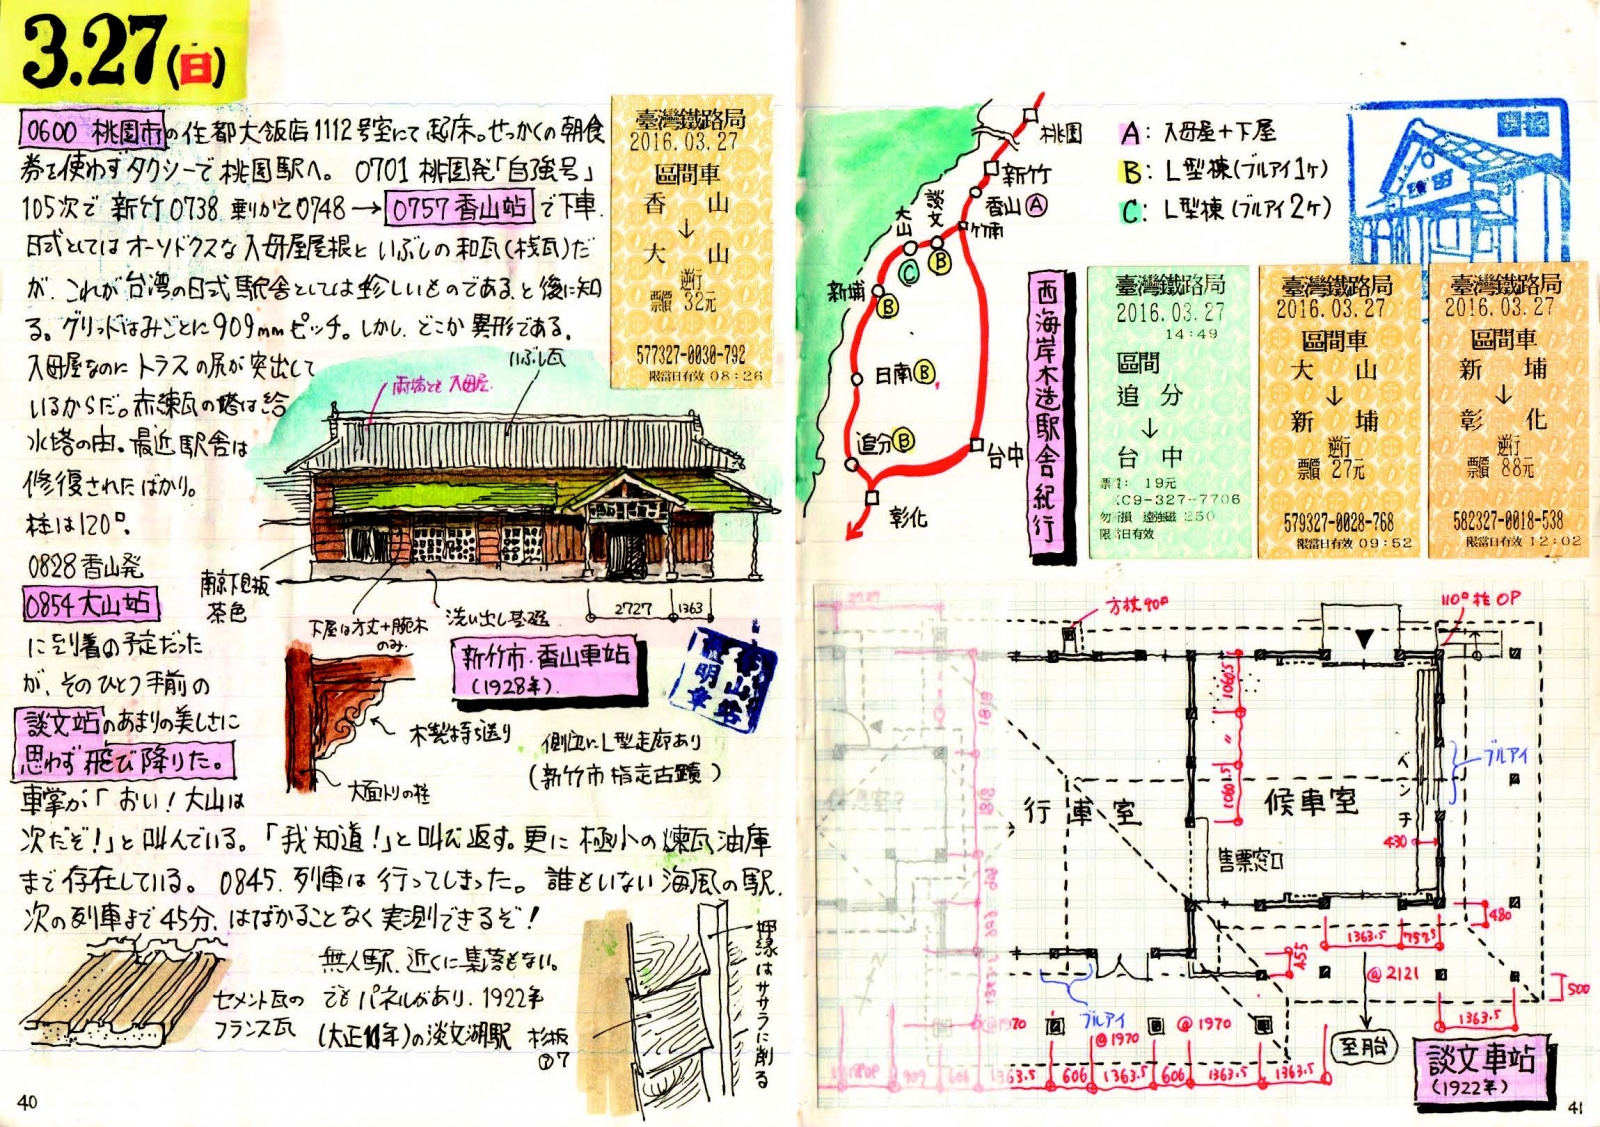 3.27(日)
0600 桃園市の住都大飯店1112号室にて起床。せっかくの朝食
券を使わずタクシーで桃園駅へ。 0701 桃園発「自強号」
105次で 新竹0738 乗りかえ0748→0757 香山站で下車.
日式としてはオーソドクスな入母屋屋根といぶしの和瓦(桟瓦)だ
が、これが台湾の日式駅舎としては珍しいものである、と後に知
る。グリッドはみごとに909mmピッチ。しかし、どこか異形である。
入母屋なのにトラスの尻が突出して
いるからだ。赤煉瓦の塔は給
水塔の由。最近駅舎は
修復されたばかり。
柱は120□.
0828 香山発
0854 大山站
に到着の予定だった
が、そのひとつ手前の
談文站のあまりの美しさに
思わず飛び降りた。
車掌が「おい!大山は
次だぞ!」と叫んでいる。「我知道!」と叫び返す。更に極小の煉瓦油庫
まで存在している。 0845. 列車は行ってしまった。誰もいない海風の駅.
次の列車まで45分、はばかることなく実測できるぞ!
無人駅、近くに集落もない。
でもパネルがあり、1922年
(大正11年)の淡文湖駅
セメント瓦の
フランス瓦
杉板
⑦7
押縁はササラに削る
臺灣鐵路局
2016.03.27
區間車
香 山
↓
大 山
逆行
票價 32元
577327-0030-792
限當日有效 08:26
両端とも入母屋.
いぶし瓦
南京下見板
茶色
下屋は方丈+腕木
のみ.
洗い出し基礎
2727
1363
新竹市・香山車站
(1928年).
木製持ち送り
大面トリの柱
側面にL型走廊あり
(新竹市指定古蹟)
40
桃園
新竹
香山 A
竹南
談文
B
大山
C
新埔
B
日南 B
追分 B
台中
彰化
A: 入母屋+下屋
B: L型棟(ブルアイ1ヶ)
C: L型棟(ブルアイ2ヶ)
西海岸木造駅舎紀行
臺灣鐵路局
2016.03.27
14:49
區間
追 分
↓
台 中
19元
C9-327-7706
限當日有效
臺灣鐵路局
2016.03.27
區間車
大 山
↓
新 埔
逆行
票價 27元
579327-0028-768
限當日有效 09:52
臺灣鐵路局
2016.03.27
區間車
新 埔
↓
彰 化
逆行
票價 88元
582327-0018-538
限當日有效 12:02
2727
方杖90□
110□柱 OP
1818
1060.5
〃
1060.5
ブルアイ
ベンチ
行車室
候車室
1818
430
售票窓口
909
480
1363.5
757.5
455
@2121
500
ブルアイ
@1970
@1970
@1970
1363.5
909
606
1363.5
606
1363.5
606
1363.5
1363.5
至胎
談文車站
(1922年)
41